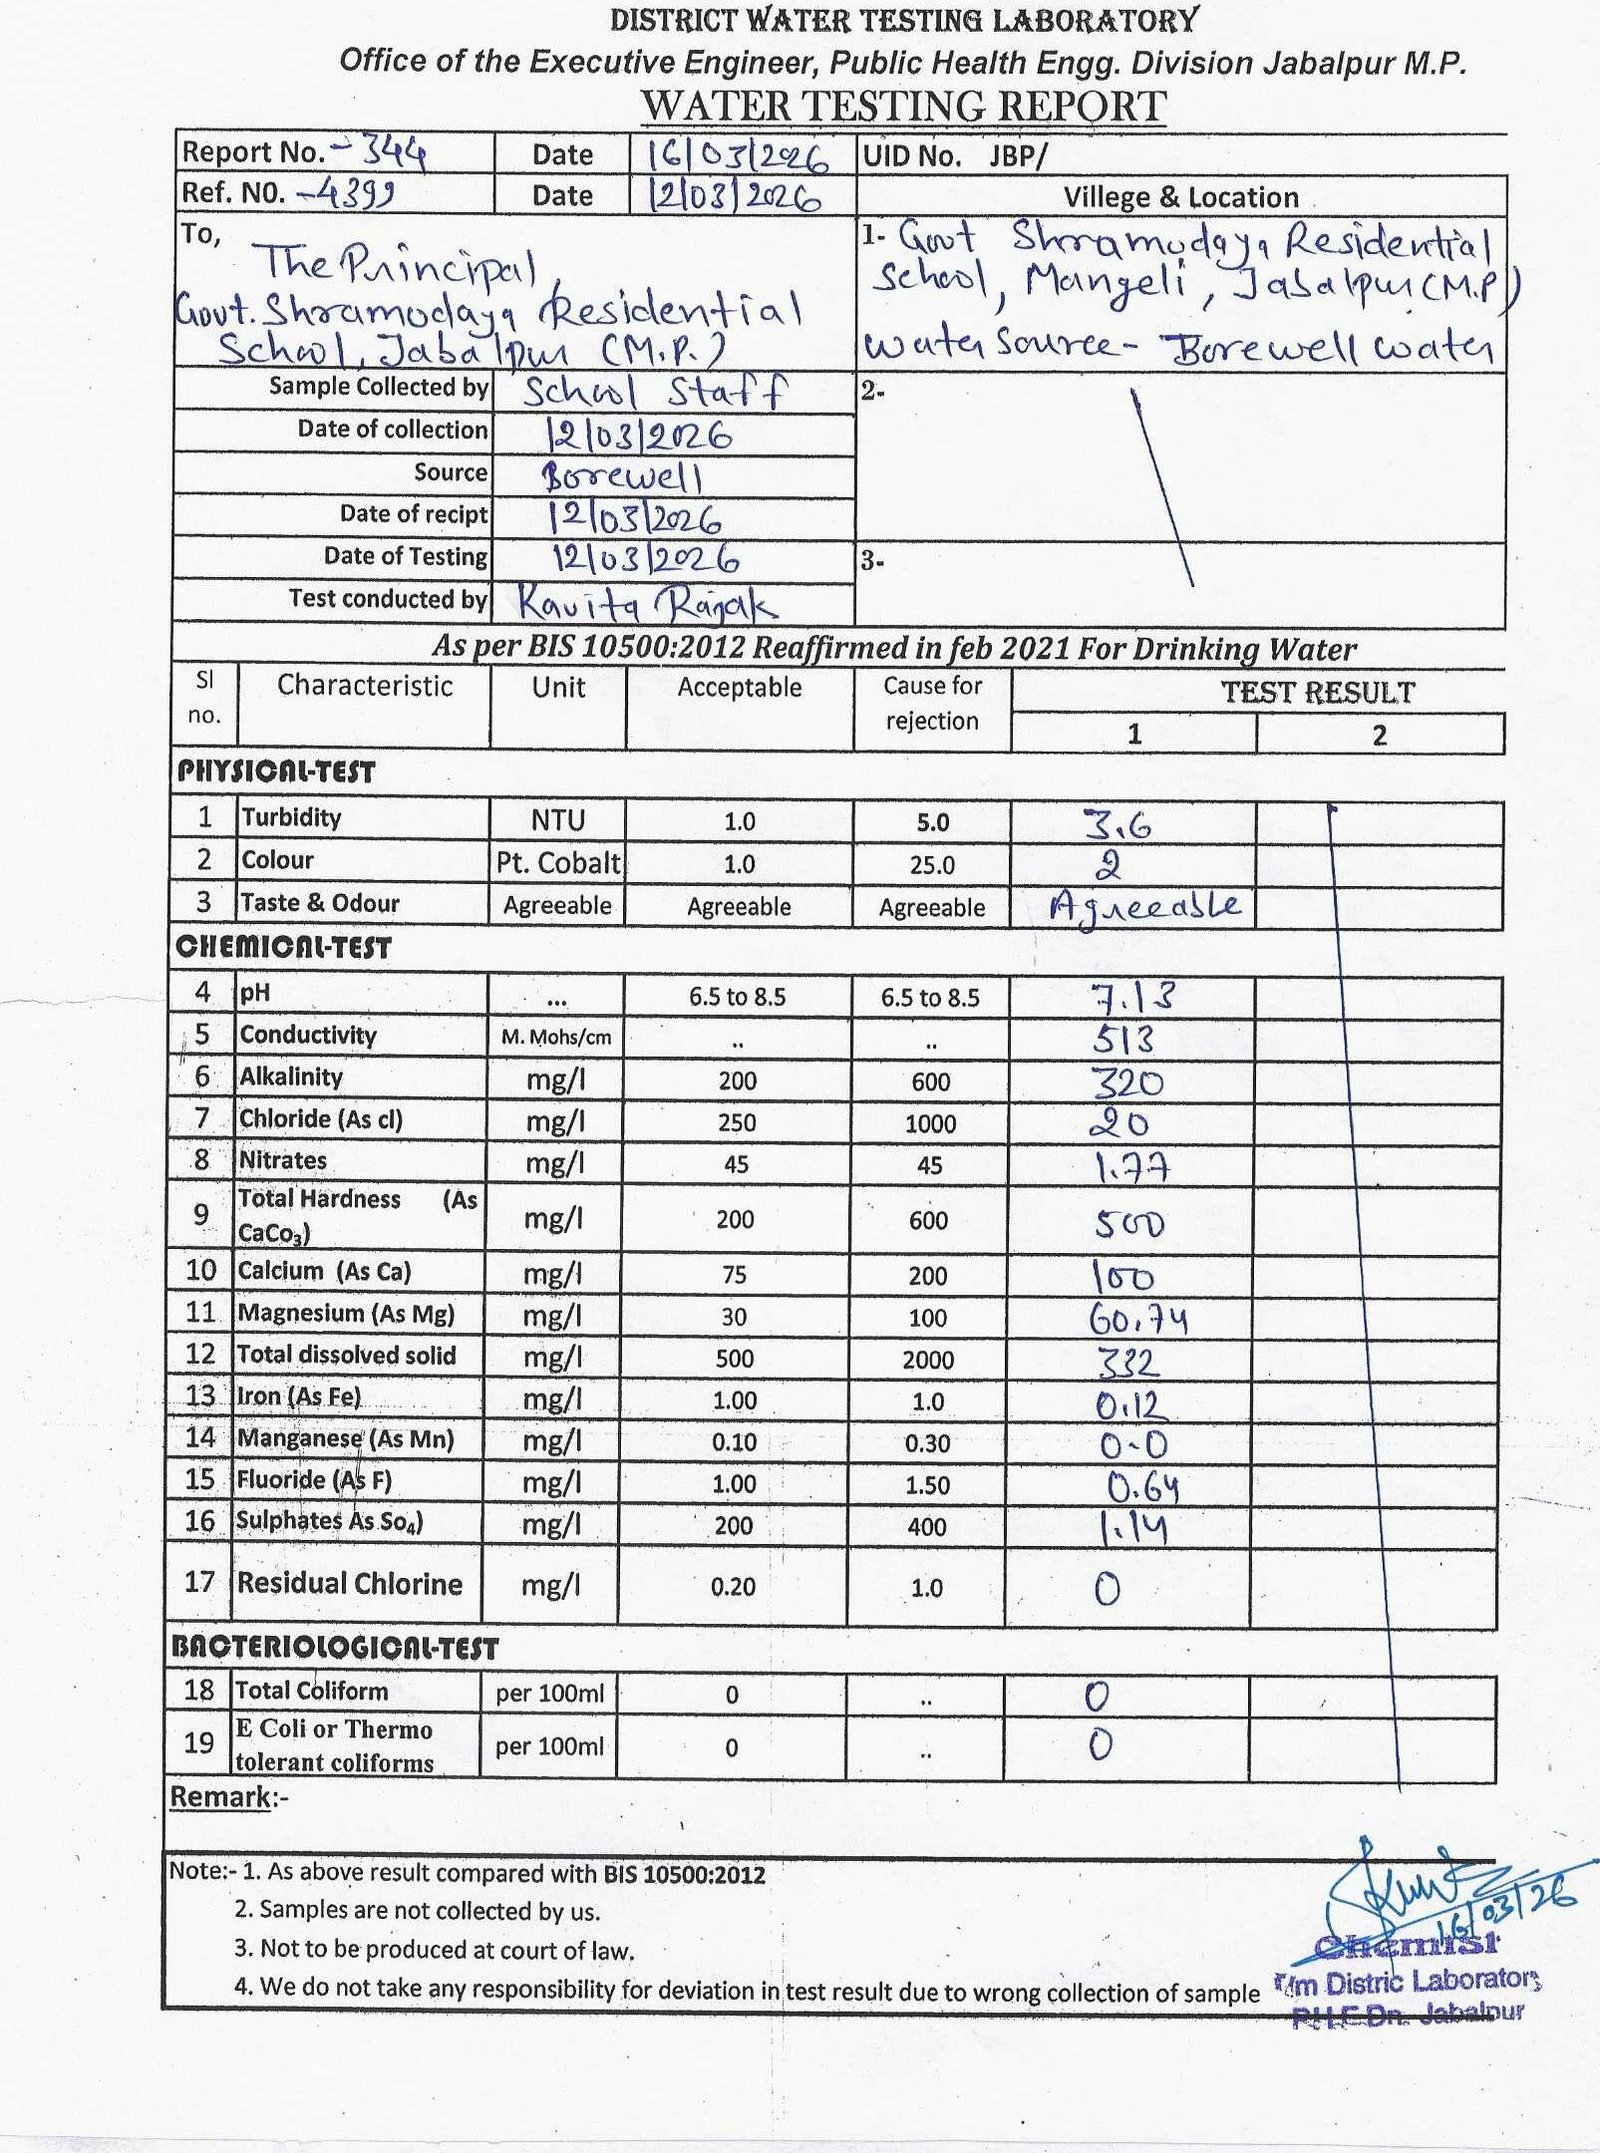 DISTRICT WATER TESTING LABORATORY
Office of the Executive Engineer, Public Health Engg. Division Jabalpur M.P.
WATER TESTING REPORT
Report No. - 344 Date 16/03/2026 UID No. JBP/
Ref. N0. - 4399 Date 12/03/2026 Villege & Location
To,
The Principal,
Govt. Shramodaya Residential
School, Jabalpur (M.P.)
1- Govt Shramodaya Residential
School, Mangeli, Jabalpur (M.P)
Water Source - Borewell water
Sample Collected by School Staff 2-
Date of collection 12/03/2026
Source Borewell
Date of recipt 12/03/2026
Date of Testing 12/03/2026 3-
Test conducted by Kavita Rajak
As per BIS 10500:2012 Reaffirmed in feb 2021 For Drinking Water
Sl no. Characteristic Unit Acceptable Cause for rejection TEST RESULT
1 2
PHYSICAL-TEST
1 Turbidity NTU 1.0 5.0 3.6
2 Colour Pt. Cobalt 1.0 25.0 2
3 Taste & Odour Agreeable Agreeable Agreeable Agreeable
CHEMICAL-TEST
4 pH ... 6.5 to 8.5 6.5 to 8.5 7.13
5 Conductivity M. Mohs/cm .. .. 513
6 Alkalinity mg/l 200 600 320
7 Chloride (As cl) mg/l 250 1000 20
8 Nitrates mg/l 45 45 1.77
9 Total Hardness (As CaCo3) mg/l 200 600 500
10 Calcium (As Ca) mg/l 75 200 100
11 Magnesium (As Mg) mg/l 30 100 60.74
12 Total dissolved solid mg/l 500 2000 332
13 Iron (As Fe) mg/l 1.00 1.0 0.12
14 Manganese (As Mn) mg/l 0.10 0.30 0-0
15 Fluoride (As F) mg/l 1.00 1.50 0.64
16 Sulphates As So4) mg/l 200 400 1.14
17 Residual Chlorine mg/l 0.20 1.0 0
BACTERIOLOGICAL-TEST
18 Total Coliform per 100ml 0 .. 0
19 E Coli or Thermo tolerant coliforms per 100ml 0 .. 0
Remark:-
Note:- 1. As above result compared with BIS 10500:2012
2. Samples are not collected by us.
3. Not to be produced at court of law.
4. We do not take any responsibility for deviation in test result due to wrong collection of sample
16/03/26
Chemist
Distric Laboratory
P.H.E Dn. Jabalpur